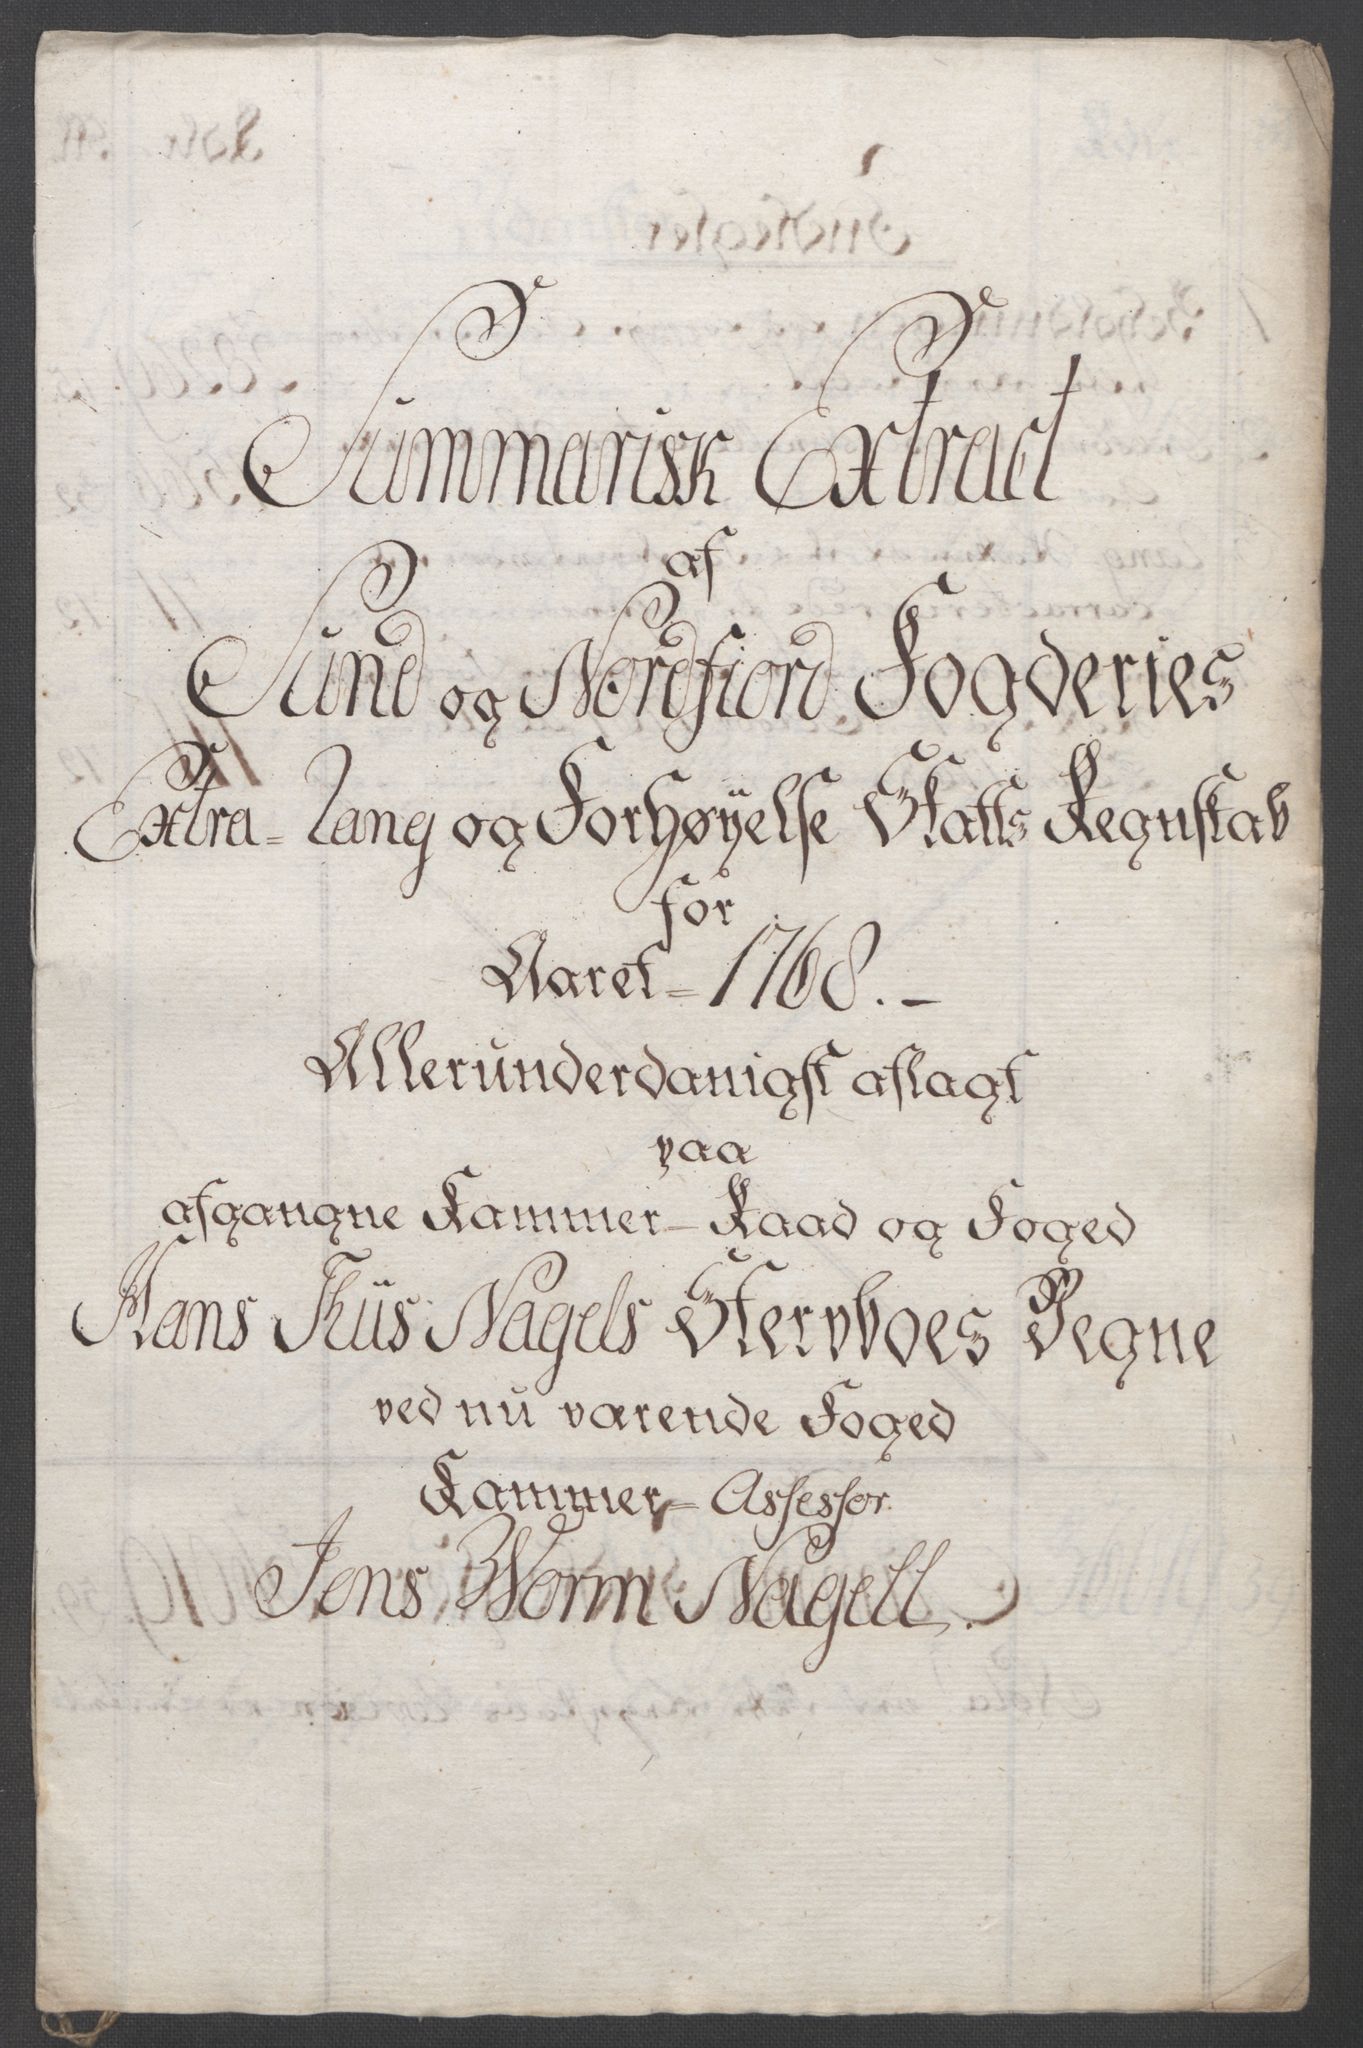 Summarisk Extract
af
Sund og Nordfiord Fogderies
Extra- Lang og Forhøyelse Skatts Regnskab
for
Aaret- 1768.-
Allerunderdanigst aflagt
paa
afgangne Kammer- Raad og Foged
Hans Thiis Nagels Sterpboes Vegne
ved nu værende Foged
Kammer- Assessor
Jens Worm Nagell.